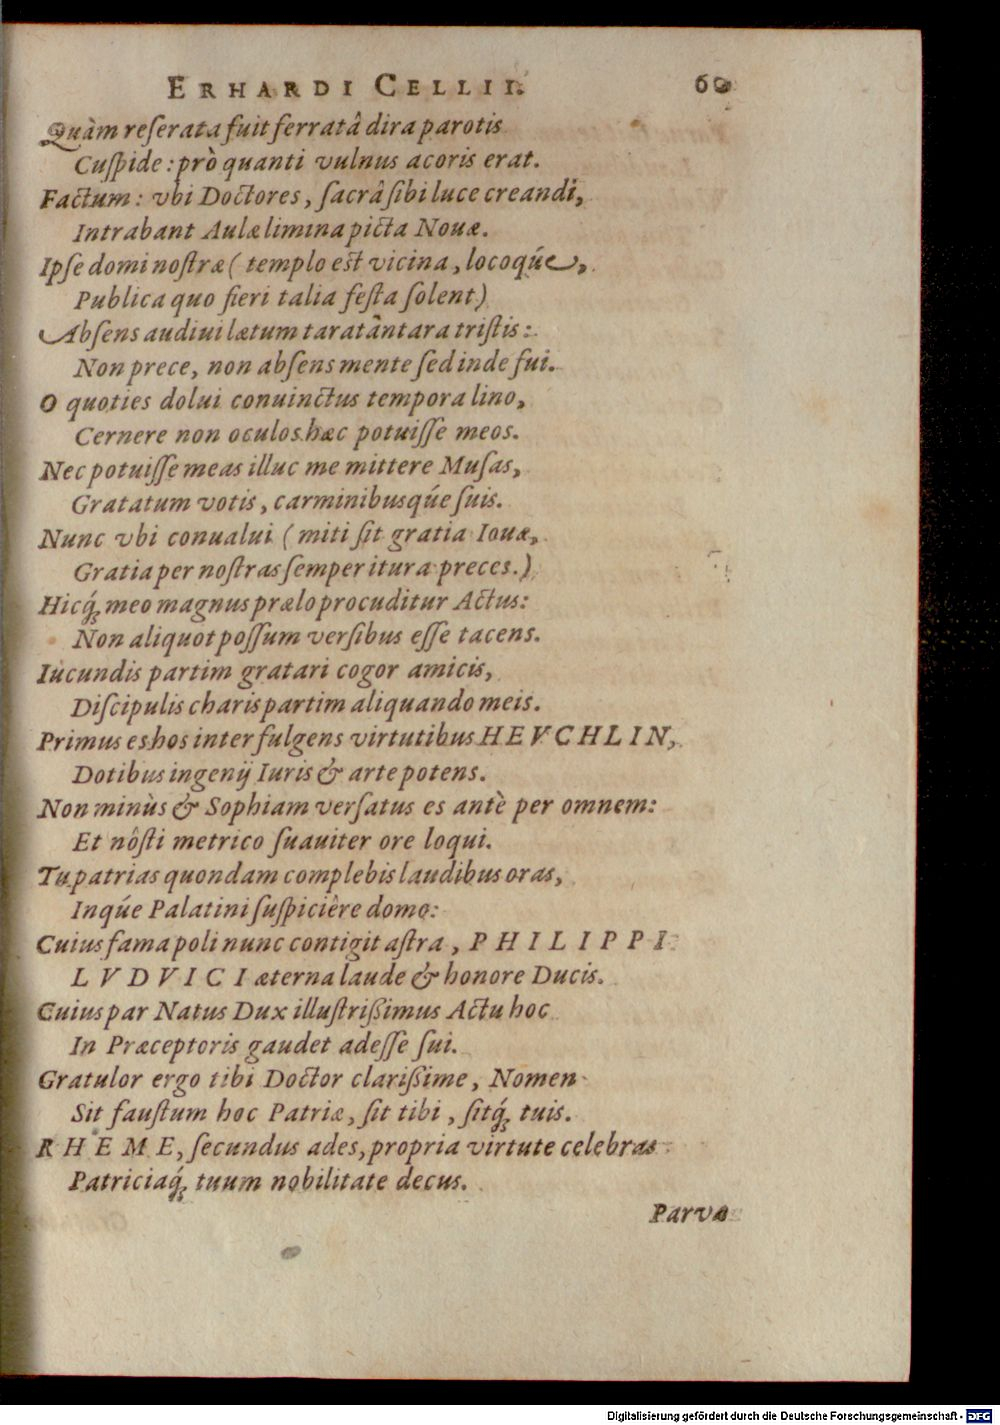 ERHARDI CELLII. 60
Quàm reſerata fuit ferratâ dira parotis
Cuſpide: prò quanti vulnus acoris erat.
Factum: vbi Doctores, ſacrâ ſibi luce creandi,
Intrabant Aulæ limina picta Nouæ.
Ipſe domi noſtræ ( templo est vicina, locoqúe,
Publica quo fieri talia feſta ſolent)
Abſens audiui lætum taratântara triſtis:
Non prece, non abſens mente ſed inde fui.
O quoties dolui conuinctus tempora lino,
Cernere non oculos hæc potuiſſe meos.
Nec potuiſſe meas illuc me mittere Muſas,
Gratatum votis, carminibusqúe ſuis.
Nunc vbi conualui ( miti ſit gratia Iouæ,
Gratia per noſtras ſemper itura preces.)
Hicq́; meo magnus prælo procuditur Actus:
Non aliquot poſſum verſibus eſſe tacens.
Iucundis partim gratari cogor amicis,
Diſcipulis charis partim aliquando meis.
Primus es hos inter fulgens virtutibus HEVCHLIN,
Dotibus ingenij Iuris & arte potens.
Non minùs & Sophiam verſatus es antè per omnem:
Et nôſti metrico ſuauiter ore loqui.
Tu patrias quondam complebis laudibus oras,
Inqúe Palatini ſuſpiciêre domo:
Cuius fama poli nunc contigit aſtra, PHILIPPI
LVDVICI æterna laude & honore Ducis.
Cuius par Natus Dux illuſtrißimus Actu hoc
In Præceptoris gaudet adeſſe ſui.
Gratulor ergo tibi Doctor clarißime, Nomen
Sit fauſtum hoc Patriæ, ſit tibi, ſitq́; tuis.
RHEME, ſecundus ades, propria virtute celebras
Patriciaq́; tuum nobilitate decus.
Parva
Digitalisierung gefördert durch die Deutsche Forschungsgemeinschaft - DFG